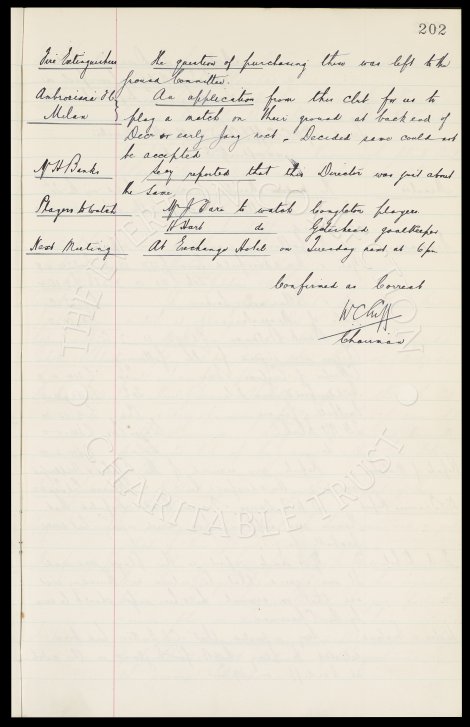 202
Fire Extinguishers The question of purchasing these was left to the
Ground Committee.
Ambrosiana F C An application from this club for us to
Milan play a match on their ground at back end of
Decr or early Jany next. Decided same could not
be accepted
Mr H Banks Secy reported that this Director was just about
the same
Players to watch Mr J Fare to watch Congleton players
W Hart do Gateshead goalkeeper
Next Meeting At Exchange Hotel on Tuesday next at 6 pm
Confirmed as Correct
W C Cuff
Chairman
THE EVERTON COLLECTION
CHARITABLE TRUST